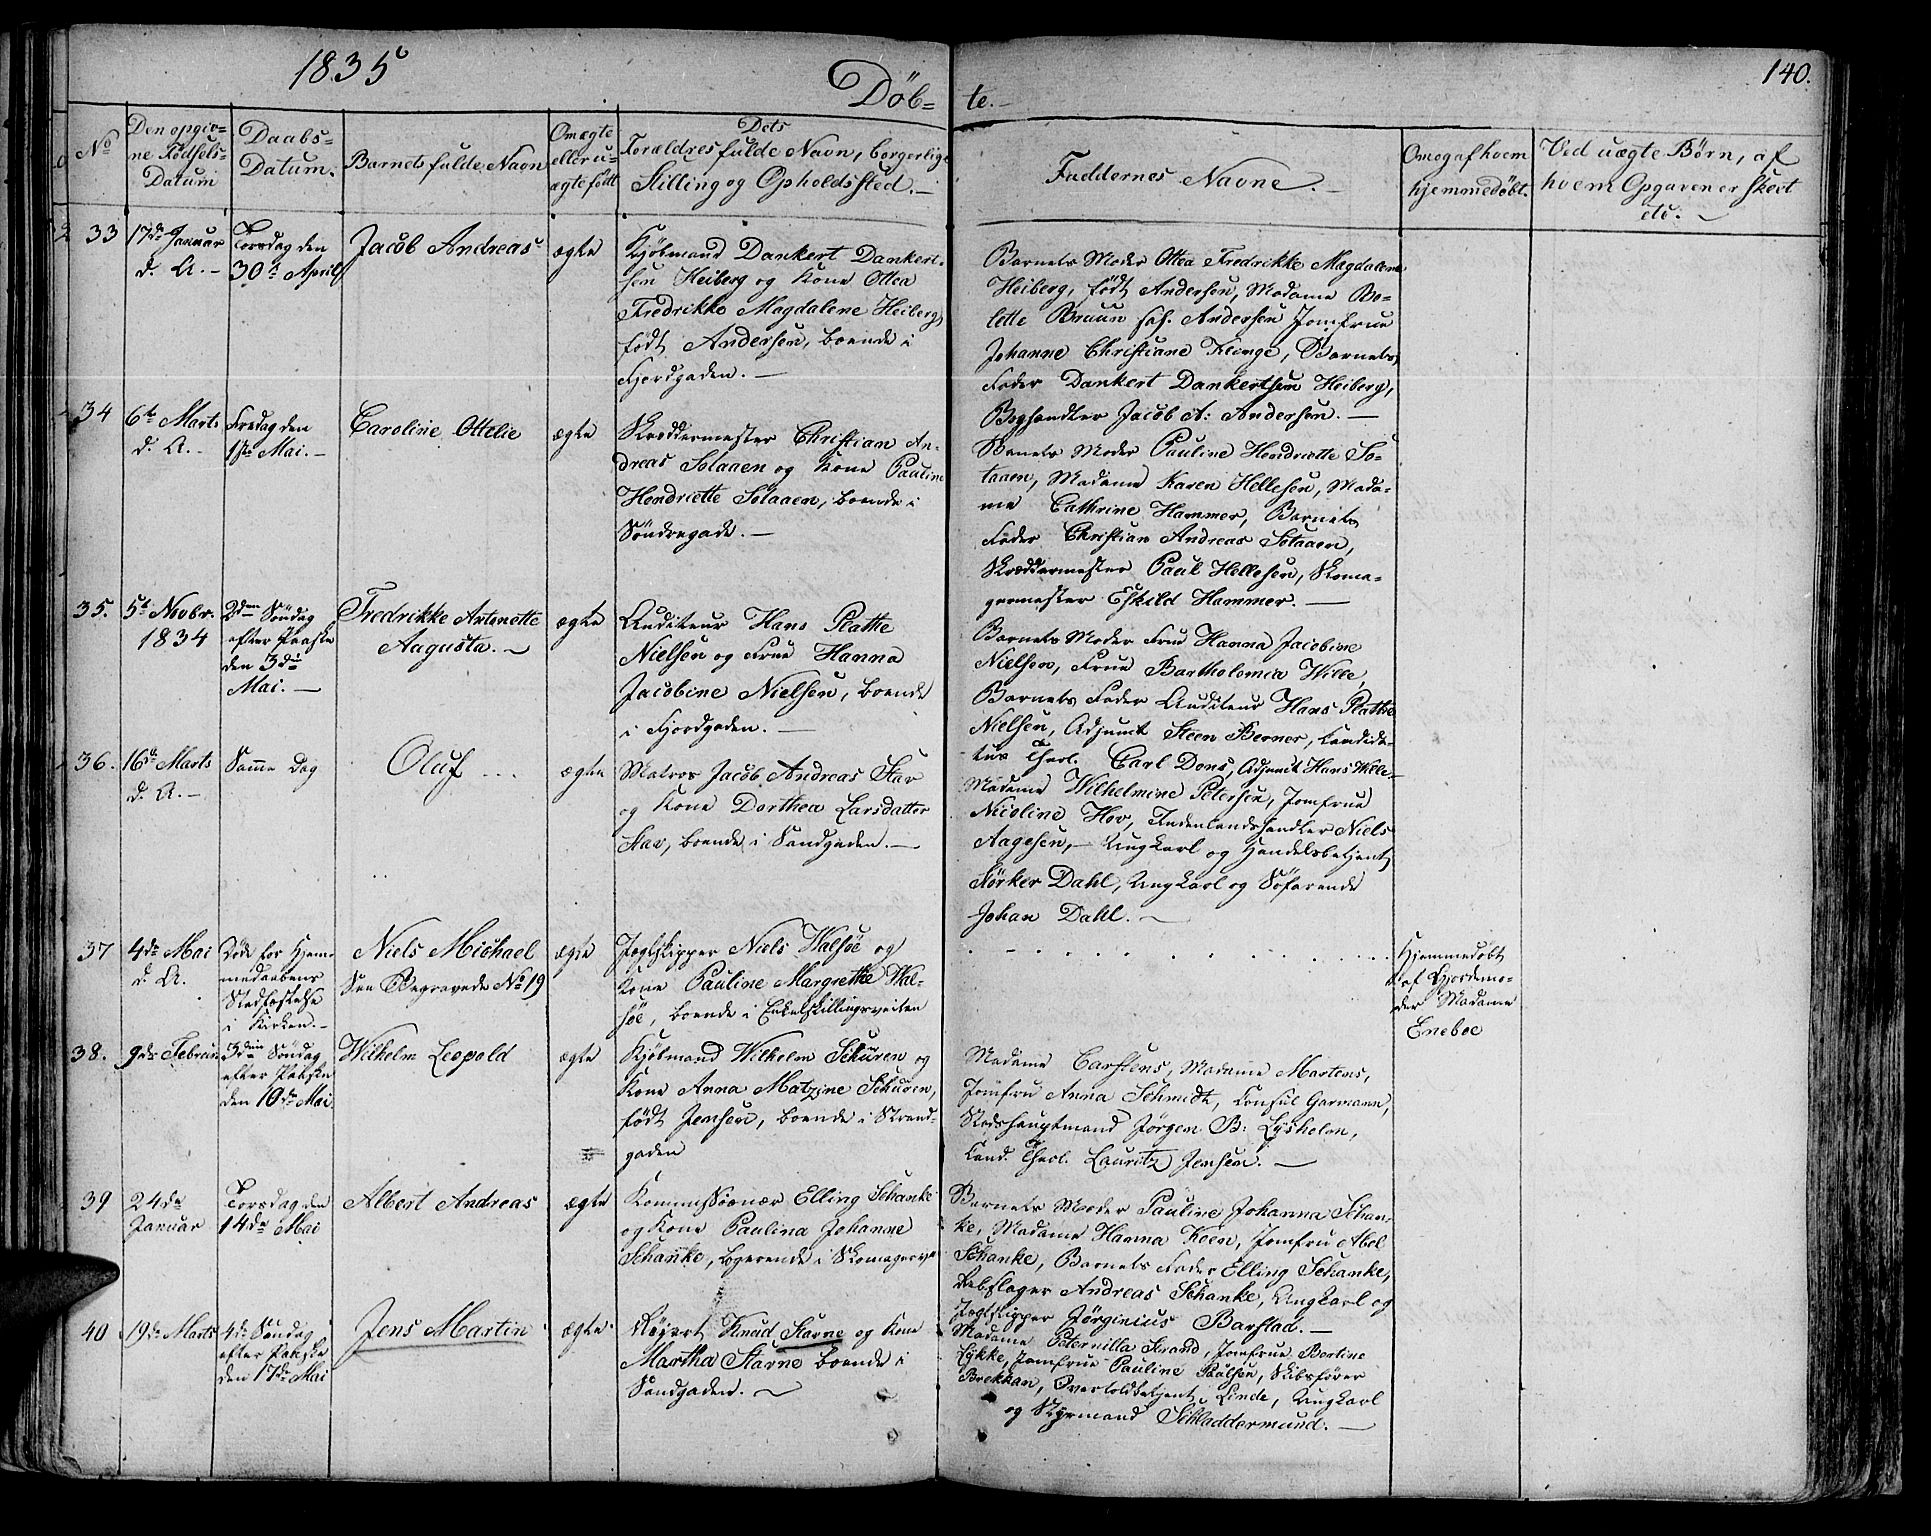 1835
Döb=
te.
140.
No
Den opgiv=
ne Födsels=
Datum
Daabs=
Datum.
Barnets fulde Navn
Om ægte
eller u=
ægte født
Dets
Forældres fulde Navn, borgerlige
Stilling og Opholdssted.
Faddernes Navne.
Om og af hvem
hjemmedøbt.
Ved uægte Børn, af
hvem Opgaven er skeet
etc.
33
17de Januar
d. A.
Torsdag den
30te April
Jacob Andreas
ægte
Kjöbmand Dankert Dankert=
sen Heiberg og Kone Ottea
Fredrikke Magdalene Heiberg
født Andersen, boende i
Fjordgaden.
Barnets Moder Ottea Fredrikke Magdalene
Heiberg, født Andersen, Madame Bo=
lette Bruun föd. Andersen Jomfrue
Johanne Christiane Klinge, Barnets
Fader Dankert Dankertsen Heiberg,
Boghandler Jacob A: Andersen.
34
6te Marts
d. A.
Fredag den
1ste Mai.
Caroline Ottelie
ægte
Skræddermester Christian An=
dreas Solaaen og Kone Pauline
Hendriette Solaaen, boende i
Søndregade.
Barnets Moder Pauline Hendriette So=
laaen, Madame Karen Hellesen, Mada=
me Cathrine Hammer, Barnets
Fader Christian Andreas Solaaen,
Skræddermester Paul Hellesen, Skoma=
germester Eskild Hammer.
35.
5te Novbr.
1834
2den Söndag
efter Paaske
den 3die
Mai.
Fredrikke Antonette
Augusta.
ægte
Auditeur Hans Platthe
Nielsen og Frue Hanna
Jacobine Nielsen, boende
i Fjordgaden.
Barnets Moder Frue Hanna Jacobine
Nielsen, Frue Bartholomia Wille,
Barnets Fader Auditeur Hans Platthe
Nielsen, Adjunct Steen Berner, Candida=
tus Theol. Carl Dons, Adjunct Hans Wille.
36.
16de Marts
d. A.
Samme Dag
Oluf
ægte
Matros Jacob Andreas Stav
og Kone Dorthea Larsdatter
Stav, boende i Sandgaden.
Madame Wilhelmine Petersen, Jomfrue
Nicoline Hov, Indenlandshandler Niels
Aagesen, Ungkarl og Handelsbetjent
Størker Dahl, Ungkarl og Søfarende
Johan Dahl.
37
4de Mai
d. A.
Døde før Hjem=
medaabens
Stadfæstelse
i Kirken.
Niels Michael
See Begravede No 19
ægte
Jagtskipper Niels Walsöe og
Kone Pauline Margrethe Wal=
söe, boende i Enkelskillingsveiten
Hjemmedøbt
af Gjordemo=
der Madame
Eneboe
38.
9de Februar
3die Söndag
efter Paaske
den 10de Mai
Wilhelm Leopold
ægte
Kjöbmand Wilhelm Schuren og
Kone Anna Matzine Schuren,
født Jensen, boende i Strand=
gaden
Madame Carstens, Madame Martens,
Jomfru Anna Schmidt, Consul Garmann,
Stadshauptmand Jörgen B: Lysholm,
Cand. Theol. Lauritz Jensen.
39
24de
Januar
Torsdag den
14de Mai
Albert Andreas
ægte
Kommissionær Elling Schanke
og Kone Paulina Johanne
Schanke, logerende i Skomagerv.
Barnets Moder Pauline Johanna Schan=
ke, Madame Hanna Keen, Jomfru Abel
Schanke, Barnets Fader Elling Schanke,
Rebslager Andreas Schanke, Ungkarl og
Jagtskipper Jörginius Barstad.
40
19de Marts
4de Søndag
efter Paaske
den 17de Mai
Jens Martin
ægte
Knud Stavne og Kone
Martha Stavne boende i
Sandgaden.
Madame Peternilla Strand, Jomfrue Bertine
Lykke, Jomfrue Pauline Paulsen, Skibsfører
Brekkan, Overtoldbetjent Linde, Ungkarl
og Styrmand Schladdermund.